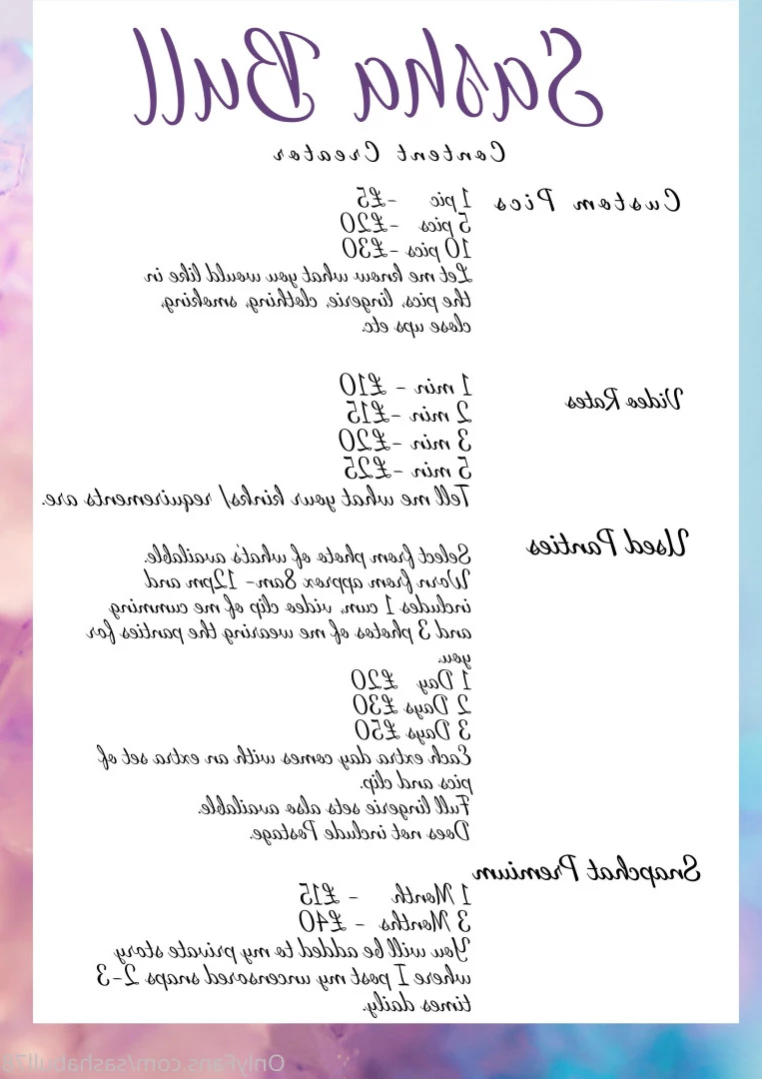 Sasha Bull
Content Creator
Custom Pics
1 pic -£5
5 pics -£20
10 pics -£30
Let me know what you would like in
the pics, lingerie, clothing, smoking,
close ups etc.
Video Rates
1 min - £10
2 min -£15
3 min -£20
5 min -£25
Tell me what your kinks/ requirements are.
Used Panties
Select from photo of what's available.
Worn from approx 8am- 12pm and
includes 1 cum, video clip of me cumming
and 3 photos of me wearing the panties for
you.
1 Day £20
2 Days £30
3 Days £50
Each extra day comes with an extra set of
pics and clip.
Full lingerie sets also available.
Does not include Postage.
Snapchat Premium
1 Month - £15
3 Months - £40
You will be added to my private story
where I post my uncensored snaps 2-3
times daily.
OnlyFans.com/sashabull78